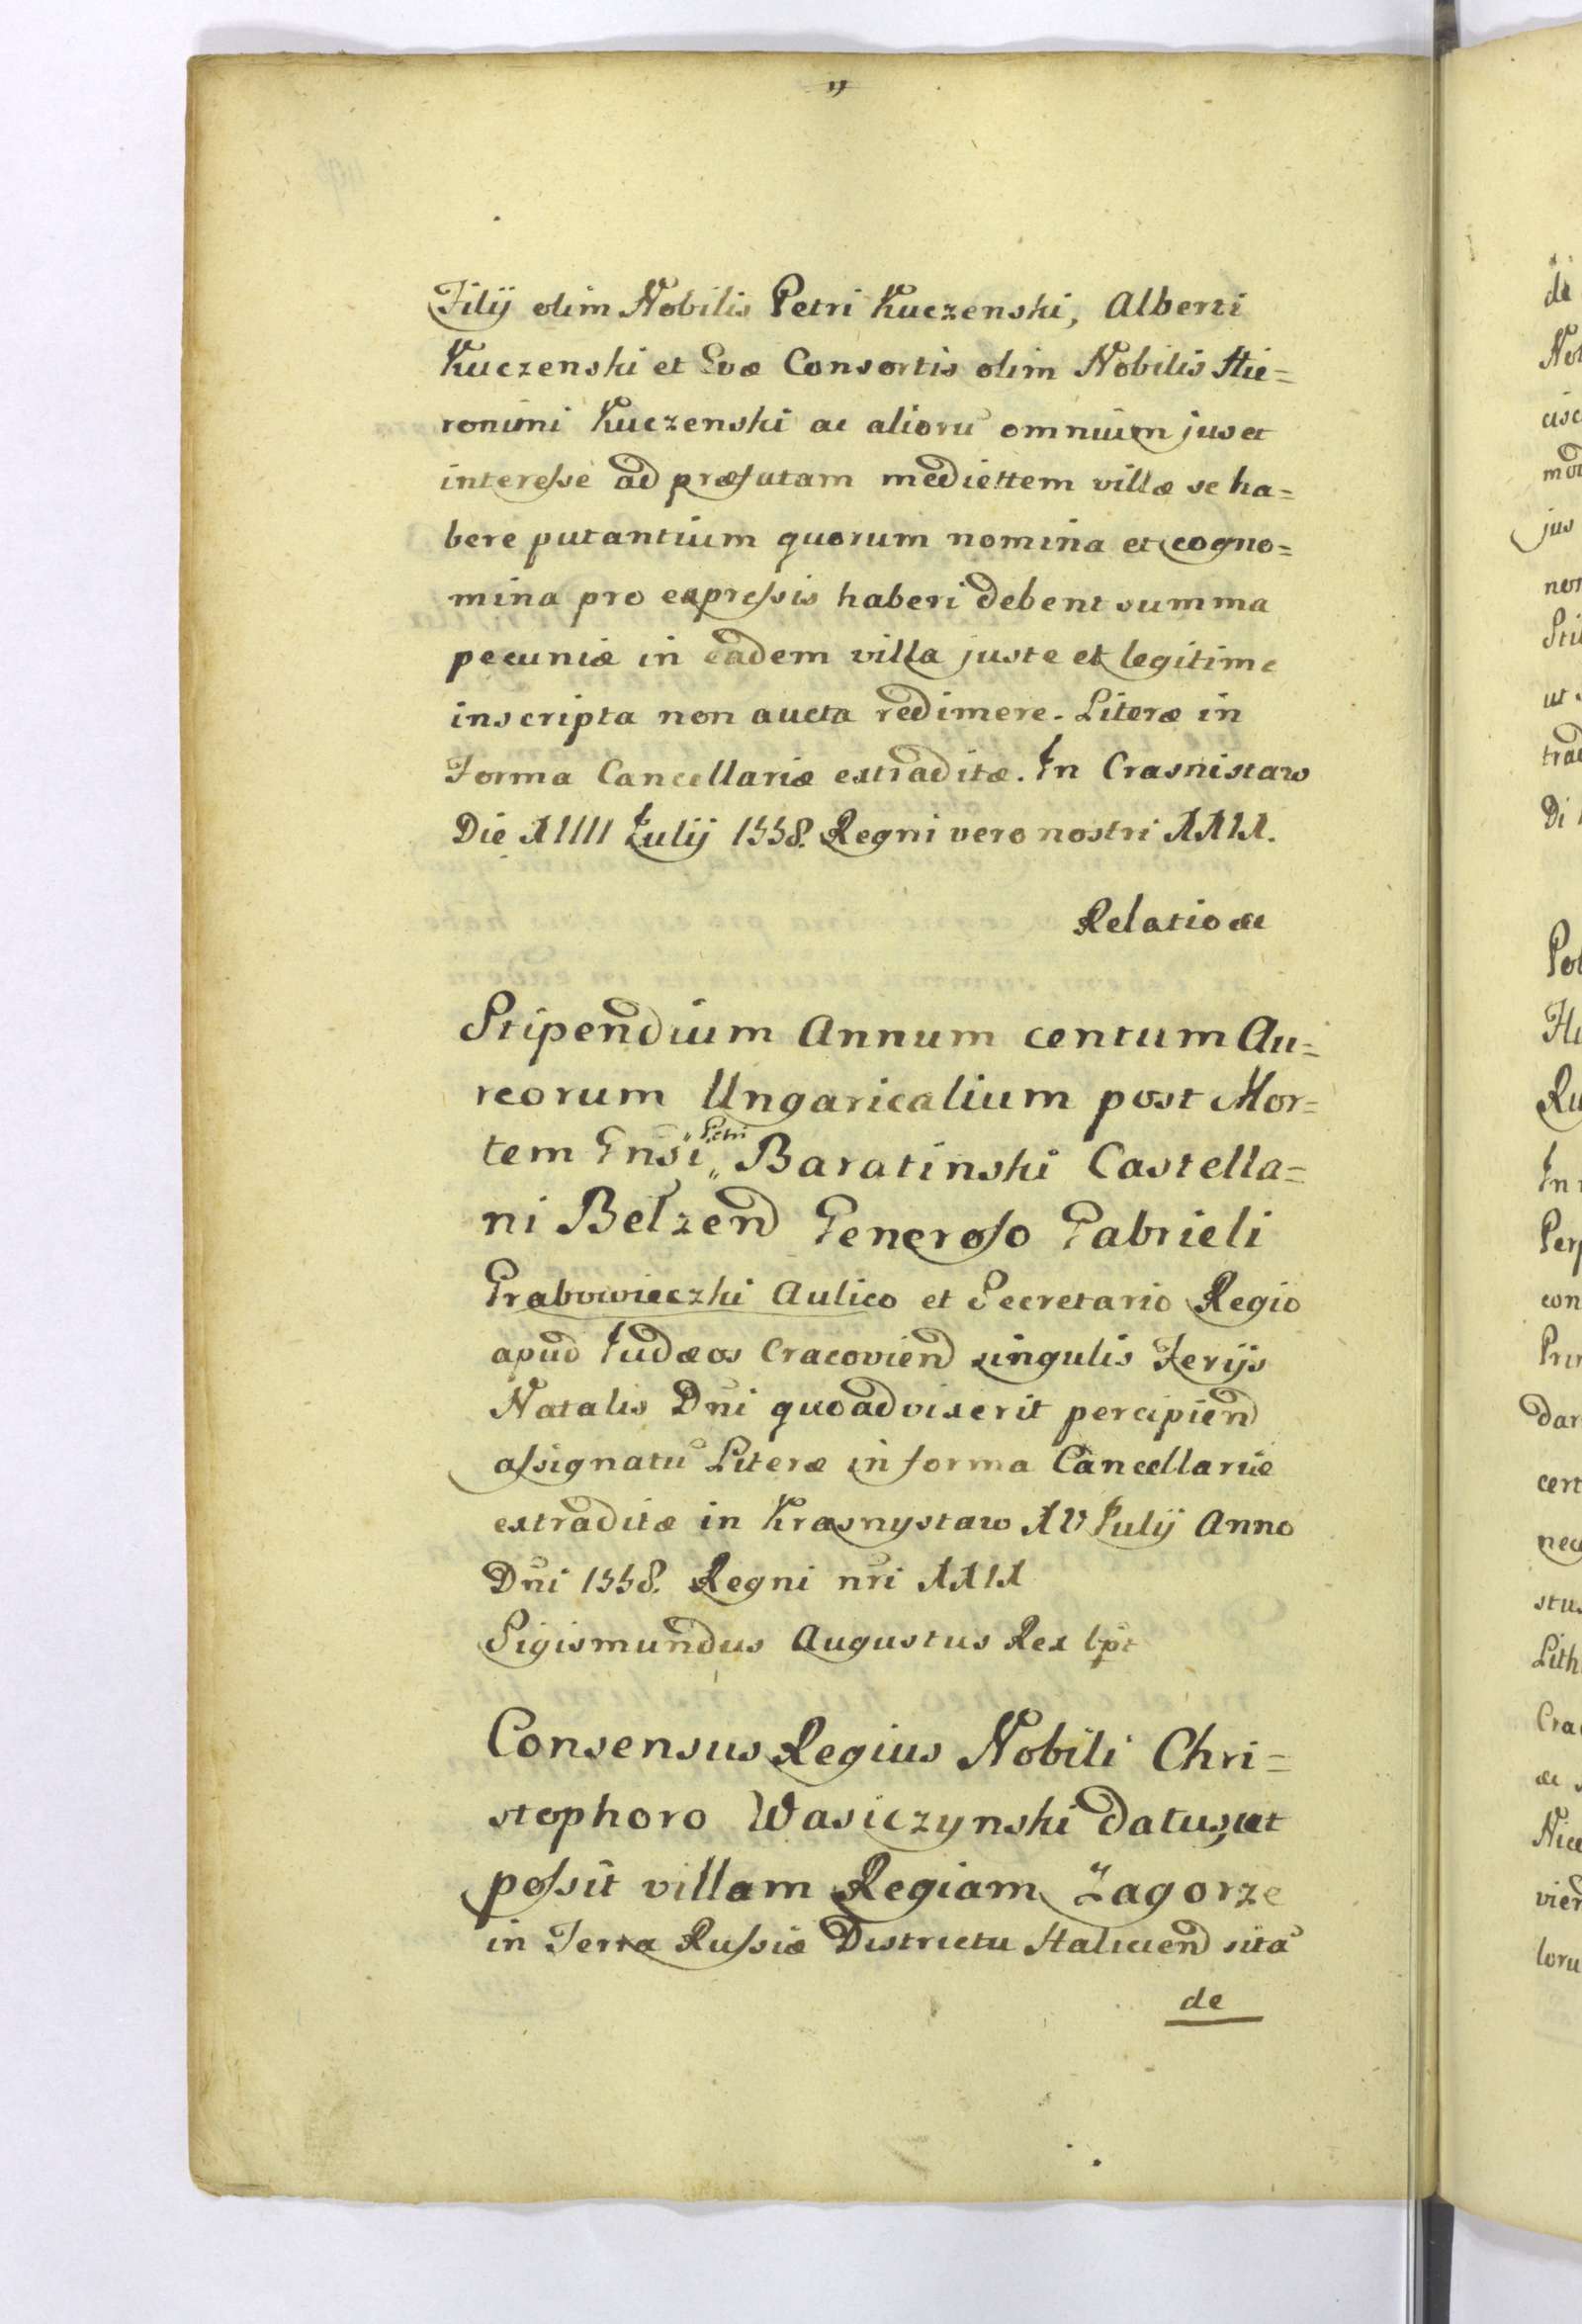 "
Filij olim Nobilis Petri Kuczenski, Alberti
Kuczenski et Evæ Consortis olim Nobilis Hie=
ronimi Kuczenski ac aliorū omnium jus et
interesse ad præfatam mediettem villæ se ha=
bere putantium quorum nomina et cogno=
mina pro expressis haberi debent summa
pecuniæ in eadem villa juste et legitime
inscripta non aucta redimere. Literæ in
Forma Cancellariæ extraditæ. In Crasnistaw
Die XIIII Julij 1558. Regni vero nostri XXIX.
Relatio &c
Stipendium Annum centum Au=
reorum Ungaricalium post Mor=
tem Gnsi " Petri " Baratinski Castella=
ni Belzen Generoso Gabrieli
Grabowieczki Aulico et Secretario Regio
apud Judæos Cracovien singulis Ferijs
Natalis Dni quoad vixerit percipien
assignatū Literæ in forma Cancellariæ
extraditæ in Krasnystaw XV Julij Anno
Dni 1558. Regni nri XXIX
Sigismundus Augustus Rex
Consensus Regius Nobili Chri=
stophoro Wasiczynski datus, ut
possit villam Regiam Zagorze
in Terra Russiæ Districtu Halicien sitā
de